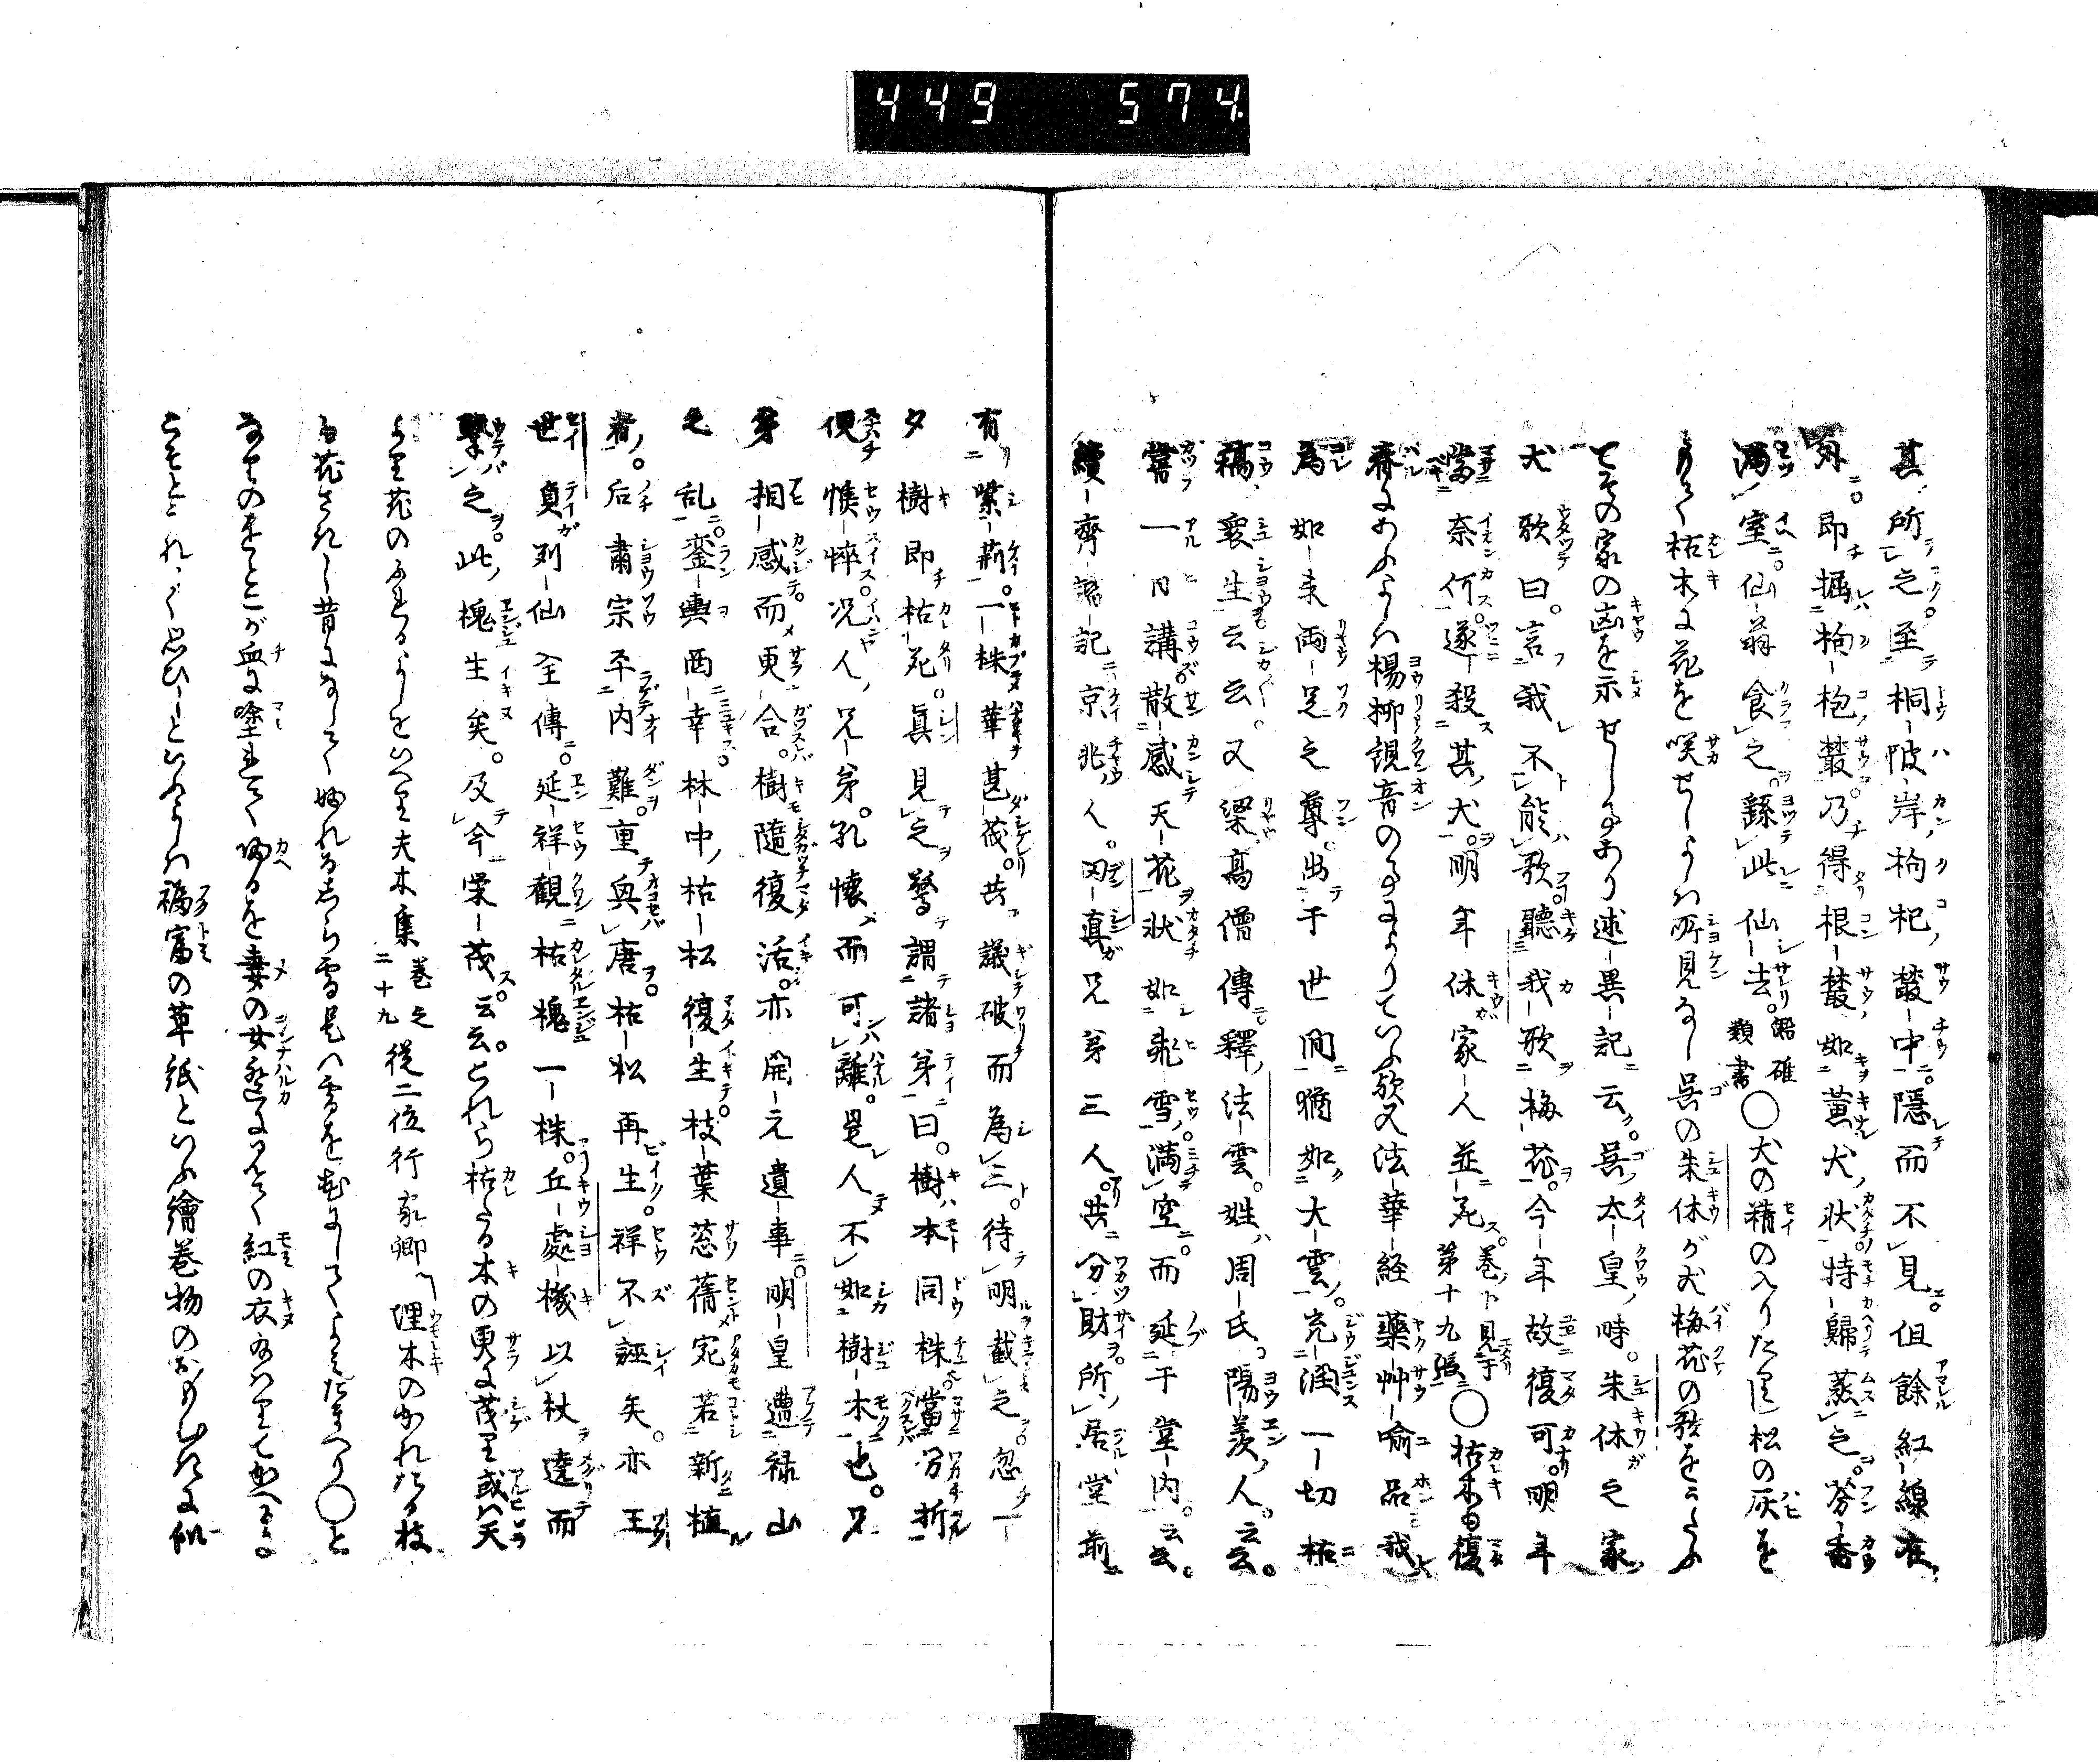 449 574
甚所之至桐陂岸枸杞叢中隠而不見但餘紅線在
外即掘枸杞叢乃得根叢如黄犬状特歸蒸之芬香
満室仙翁食之蘇此仙去
類書
○犬の精の入りたる松の灰を
もて枯木に花を咲せしよしハ所見なし呉の朱休が犬梅花の歌をうたふ
てその家の凶を示せし事あり述異記云呉太皇時朱休之家
犬歌曰言我不能歌聽我歌梅花今年故復可明年
當奈何遂殺其犬明年休家人並死巻見于第十九張○枯木の復
春にあふよしハ楊柳観音の事よりていふ歟又法華経藥艸喩品我
為如来両足之尊出于世間猶如大雲充潤一切枯
稿衆生云云又梁髙僧傳釋法雲姓周氏陽羨人云云
甞一日講散感天花状如飛雪満空而延于堂内云云
續齊諧記京兆人田真兄弟三人共分財所居堂前
有紫荊一株華甚茂共議破而為三待明截之忽一
夕樹即枯死真見之驚謂諸弟曰樹本同株當分折
便憔悴況人兄弟孔懐而可離是人不如樹木也兄
弟相感而更合樹隨復活亦開元遺事明皇遭禄山
之乱鑾輿西幸林中枯松復生枝葉葱蒨宛若新植
者后肅宗平内難重興唐枯松再生祥不誣矣亦王
世貞列仙全傳延祥觀枯槐一株丘處機以杖遶而
撃之此槐生矣及今栄茂云云これら枯たる木の更に茂里或ハ天
より花のふるよしをいへ里夫木集巻之二十九從二位行家卿埋木のかれたる枝
○と
なすのをとこが血に塗れて帰るを妻の女遥に見て紅の衣
こそとれく思ひしといふよしハ福富の草紙といふ繪巻物のおもむきに似